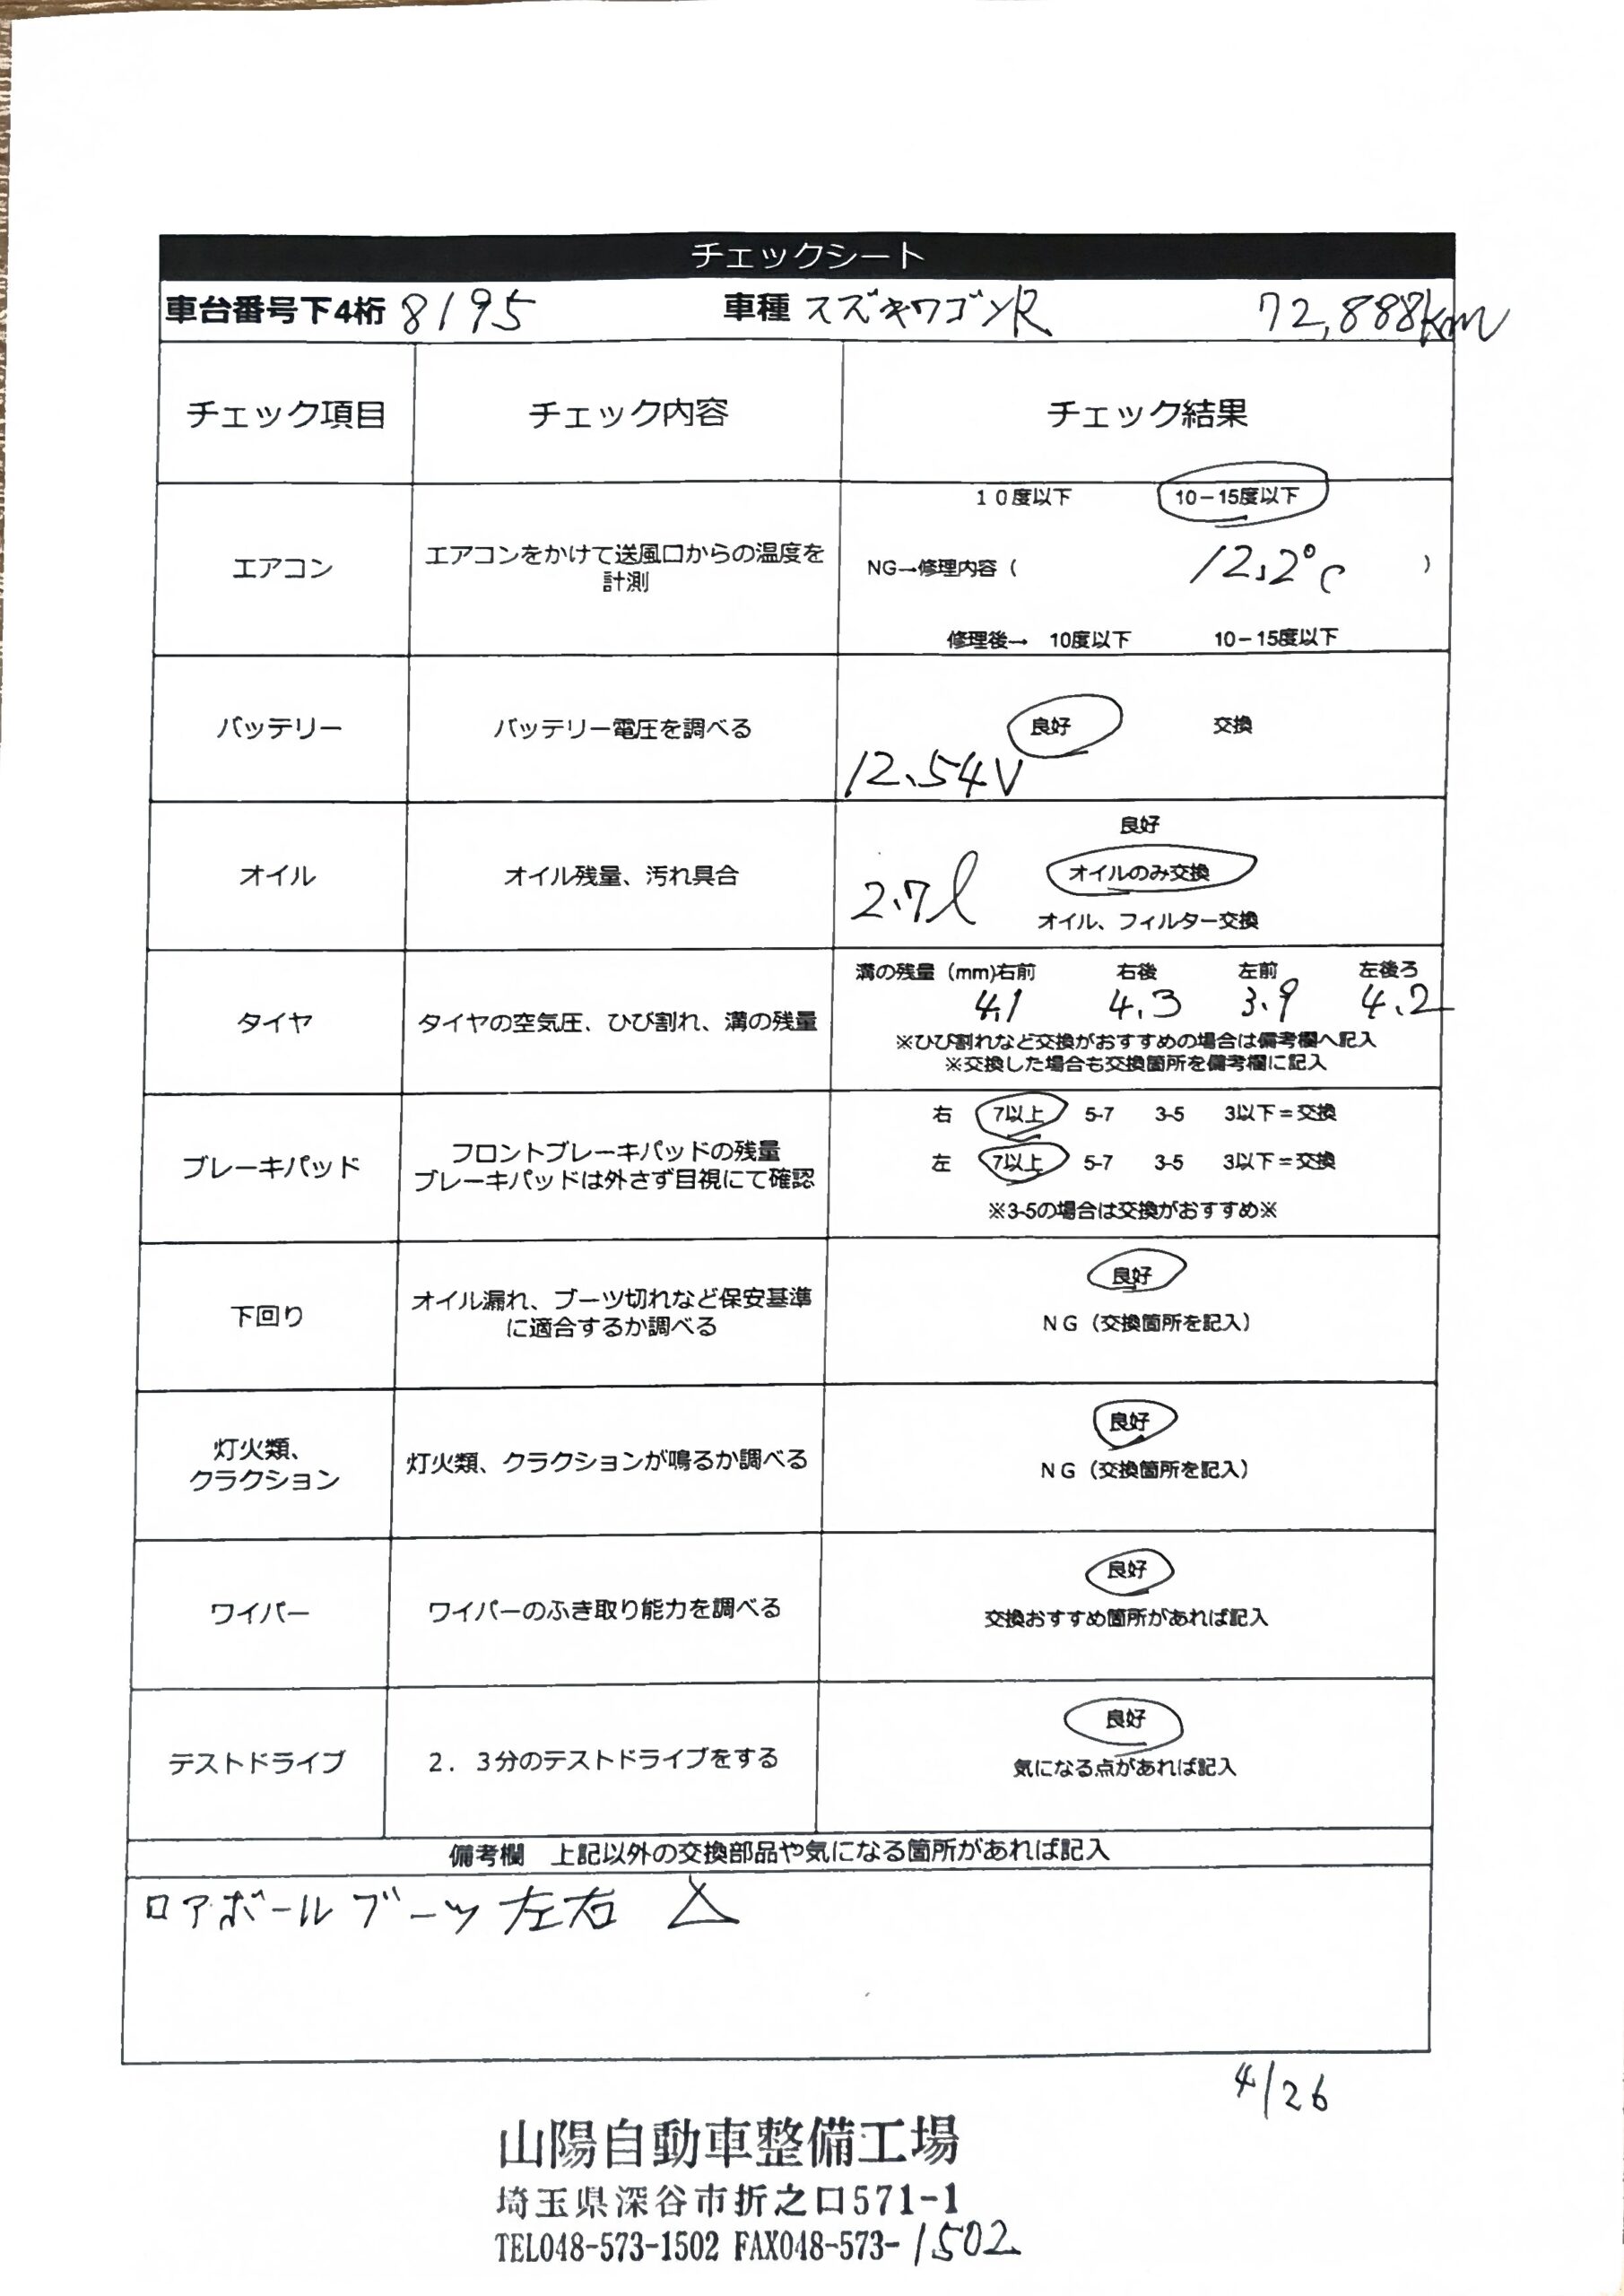 チェックシート
車台番号下4桁 8195 車種 スズキワゴンR 72,888km
チェック項目 チェック内容 チェック結果
エアコン
エアコンをかけて送風口からの温度を
計測
10度以下 10−15度以下
NG→修理内容（ 12.2°C ）
修理後→ 10度以下 10−15度以下
バッテリー
バッテリー電圧を調べる
良好 交換
12.54V
オイル
オイル残量、汚れ具合
良好
2.7ℓ オイルのみ交換
オイル、フィルター交換
タイヤ
タイヤの空気圧、ひび割れ、溝の残量
溝の残量（mm)右前 右後 左前 左後ろ
4.1 4.3 3.9 4.2
※ひび割れなど交換がおすすめの場合は備考欄へ記入
※交換した場合も交換箇所を備考欄に記入
ブレーキパッド
フロントブレーキパッドの残量
ブレーキパッドは外さず目視にて確認
右 7以上 5-7 3-5 3以下＝交換
左 7以上 5-7 3-5 3以下＝交換
※3-5の場合は交換がおすすめ※
下回り
オイル漏れ、ブーツ切れなど保安基準
に適合するか調べる
良好
NG（交換箇所を記入）
灯火類、
クラクション
灯火類、クラクションが鳴るか調べる
良好
NG（交換箇所を記入）
ワイパー
ワイパーのふき取り能力を調べる
良好
交換おすすめ箇所があれば記入
テストドライブ
2．3分のテストドライブをする
良好
気になる点があれば記入
備考欄　上記以外の交換部品や気になる箇所があれば記入
ロアボールブーツ左右 △
4/26
山陽自動車整備工場
埼玉県深谷市折之口571-1
TEL048-573-1502 FAX048-573-1502